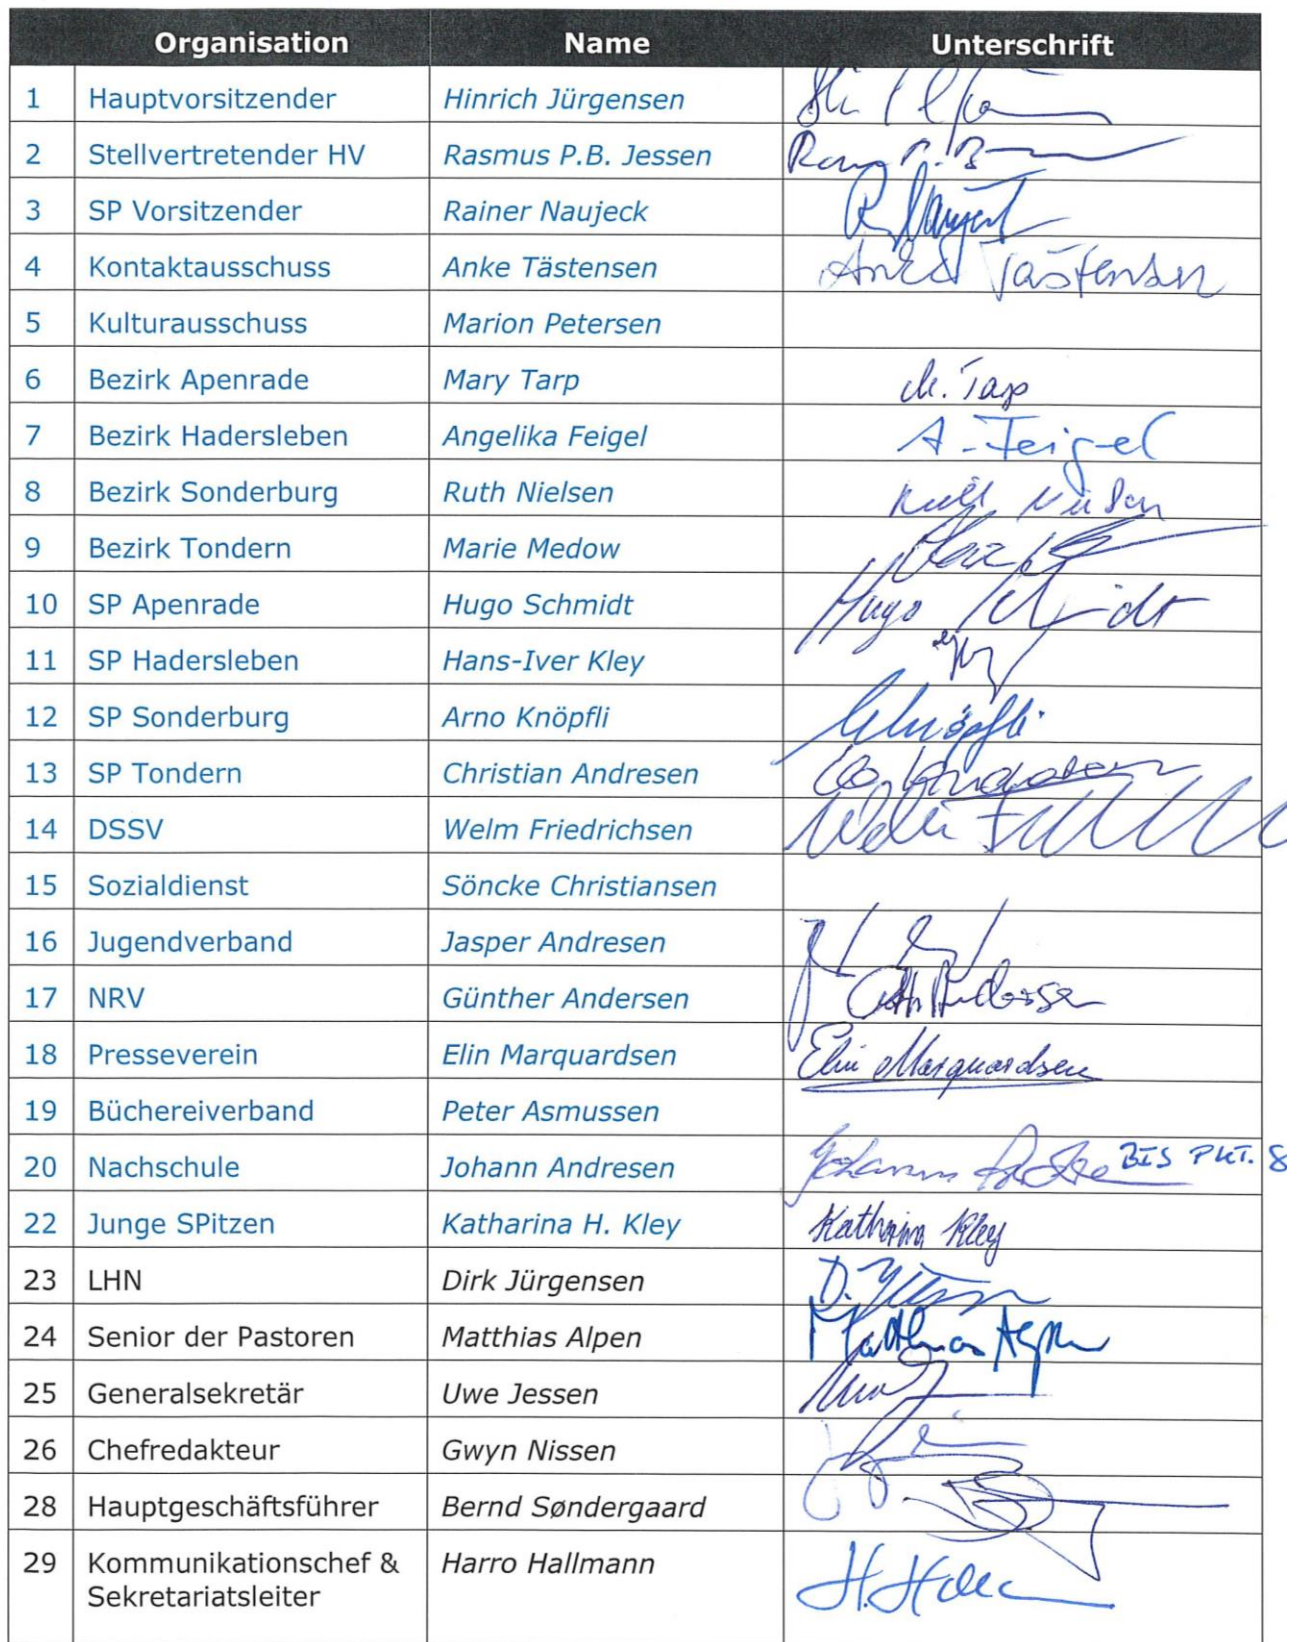 Organisation Name Unterschrift
1 Hauptvorsitzender Hinrich Jürgensen
2 Stellvertretender HV Rasmus P.B. Jessen
3 SP Vorsitzender Rainer Naujeck
4 Kontaktausschuss Anke Tästensen Anke Tästensen
5 Kulturausschuss Marion Petersen
6 Bezirk Apenrade Mary Tarp M. Tarp
7 Bezirk Hadersleben Angelika Feigel A. Feigel
8 Bezirk Sonderburg Ruth Nielsen Ruth Nielsen
9 Bezirk Tondern Marie Medow
10 SP Apenrade Hugo Schmidt Hugo Schmidt
11 SP Hadersleben Hans-Iver Kley
12 SP Sonderburg Arno Knöpfli AKnöpfli
13 SP Tondern Christian Andresen
14 DSSV Welm Friedrichsen
15 Sozialdienst Söncke Christiansen
16 Jugendverband Jasper Andresen
17 NRV Günther Andersen
18 Presseverein Elin Marquardsen Elin Marquardsen
19 Büchereiverband Peter Asmussen
20 Nachschule Johann Andresen Johann BIS PKT. 8
22 Junge SPitzen Katharina H. Kley Katharina Kley
23 LHN Dirk Jürgensen
24 Senior der Pastoren Matthias Alpen Matthias Alpen
25 Generalsekretär Uwe Jessen
26 Chefredakteur Gwyn Nissen
28 Hauptgeschäftsführer Bernd Søndergaard
29 Kommunikationschef & Harro Hallmann
Sekretariatsleiter